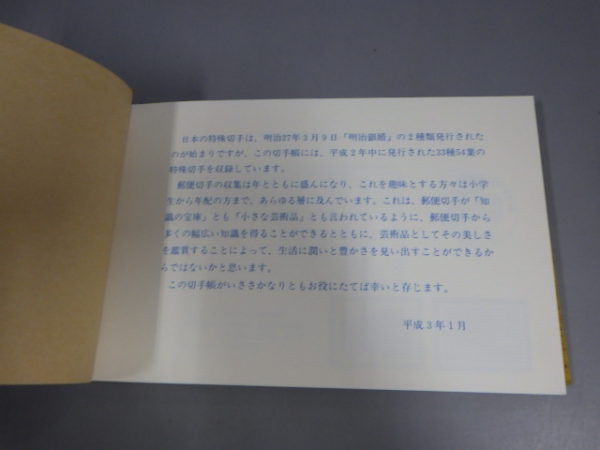 日本の特殊切手は、明治27年3月9日「明治銀婚」の2種類発行された
のが始まりですが、この切手帳には、平成2年中に発行された33種54葉の
特殊切手を収録しています。
郵便切手の収集は年とともに盛んになり、これを趣味とする方々は小学
生から年配の方まで、あらゆる層に及んでいます。これは、郵便切手が「知
識の宝庫」とも「小さな芸術品」とも言われているように、郵便切手から
多くの幅広い知識を得ることができるとともに、芸術品としてその美しさ
を鑑賞することによって、生活に潤いと豊かさを見い出すことができるか
らではないかと思います。
この切手帳がいささかなりともお役にたてば幸いと存じます。
平成3年1月